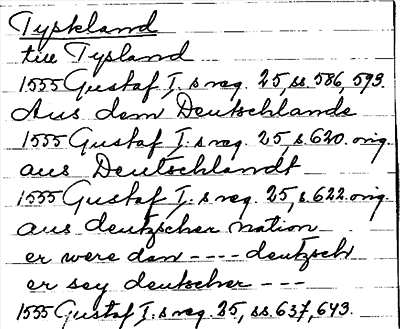 Tyskland
till Tysland
1555 Gustaf I.s reg. 25, ss. 586, 593.
Aus dem Deutschlande
1555 Gustaf I.s reg. 25, s. 620. orig.
aus Deutschlandt
1555 Gustaf I.s reg. 25, s. 622. orig.
aus deutzscher nation
er were dan ---- deutzsch
er sey deutscher ---
1555 Gustaf I.s reg. 25, ss. 637, 643.